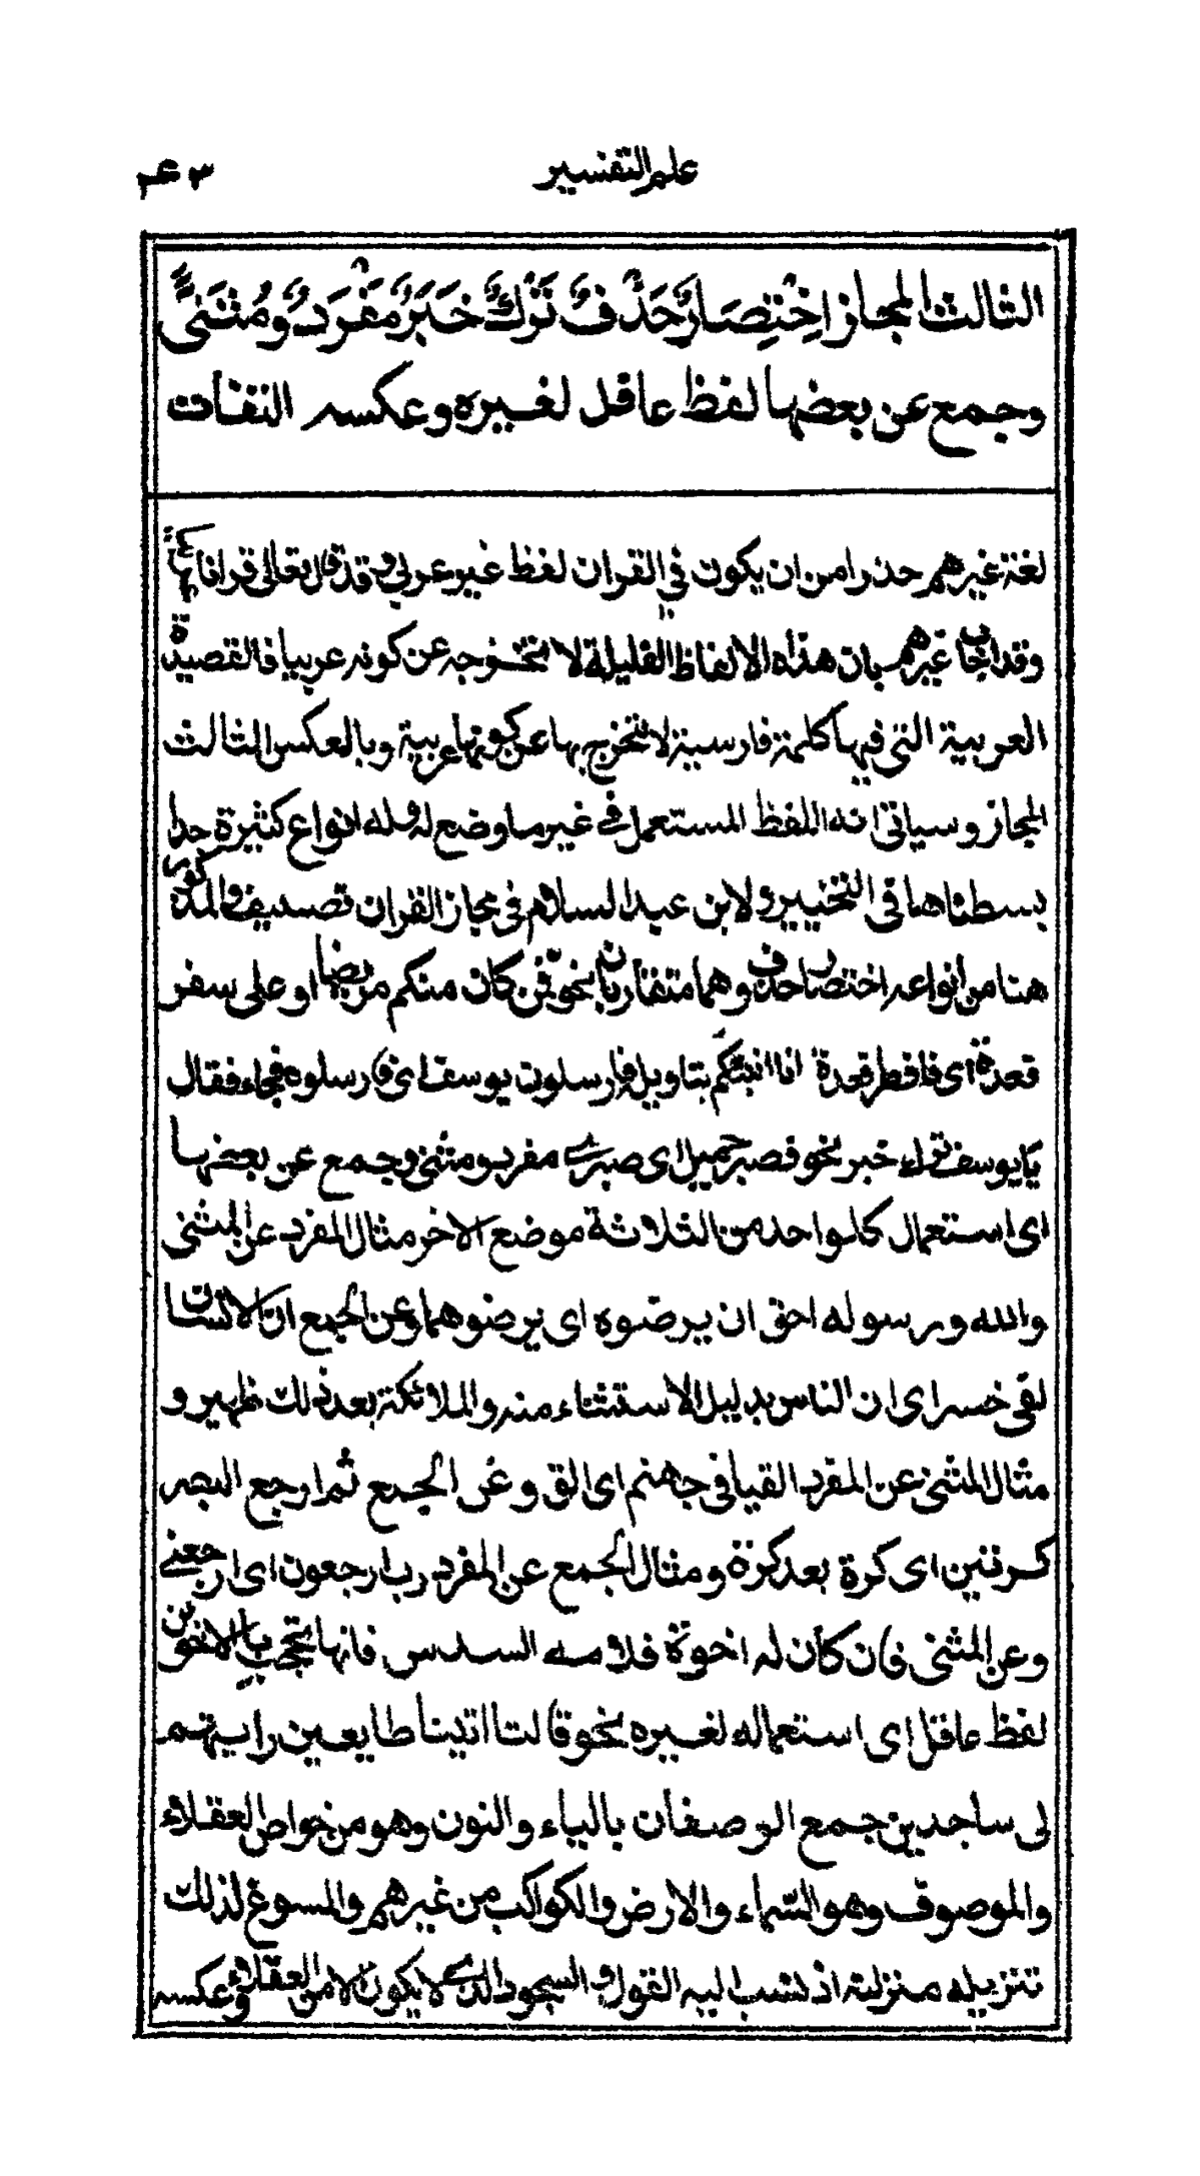 علم التفسير ٤٣
الثالث المجاز اِخْتِصَارٌ حَذْفٌ تَرْكُ خَبَرٍ مُفْرَدٌ وَمُثَنًى
وجمع عن بعضها لفظ عاقل لغيره وعكسه التفات
لغة غيرهم حذرا من ان يكون في القران لفظ غير عربي وقد قال تعالى قرانا عربيا
وقد اجاب غيرهم بان هذه الالفاظ القليلة لا تخرجه عن كونه عربيا فالقصيدة
العربية التي فيها كلمة فارسية لا تخرج بها عن كونها عربية وبالعكس الثالث
المجاز وسياتي انه اللفظ المستعمل في غير ما وضع له وله انواع كثيرة جدا
بسطناها في التحبير ولابن عبد السلام في مجاز القران تصنيف والمذكور
هنا من انواعه اختصار حذف وهما متقاربان نحو فمن كان منكم مريضا او على سفر
فعدة اى فافطر فعدة انا انبئكم بتاويله فارسلون يوسف اى فارسلوه فجاء فقال
يا يوسف ترك خبر نحو فصبر جميل اى صبرى مفرد ومثنى وجمع عن بعضها
اى استعمال كل واحد من الثلاثة موضع الاخر مثال المفرد عن المثنى
والله ورسوله احق ان يرضوه اى يرضوهما وعن الجمع ان الانسان
لفى خسر اى ان الناس بدليل الاستثناء منه والملائكة بعد ذلك ظهير و
مثال المثنى عن المفرد القيا في جهنم اى الق وعن الجمع ثم ارجع البصر
كرتين اى كرة بعد كرة ومثال الجمع عن المفرد رب ارجعون اى ارجعنى
وعن المثنى فان كان له اخوة فلامه السدس فانها تحجب بالاخوين
لفظ عاقل اى استعماله لغيره نحو قالتا اتينا طايعين رايتهم
لى ساجدين جمع الوصفان بالياء والنون وهو من خواص العقلاء
والموصوف وهو السماء والارض والكواكب من غيرهم والمسوغ لذلك
تنزيله منزلته اذ نسب اليه القول والسجود الذى لا يكون الا من العقلاء وعكسه